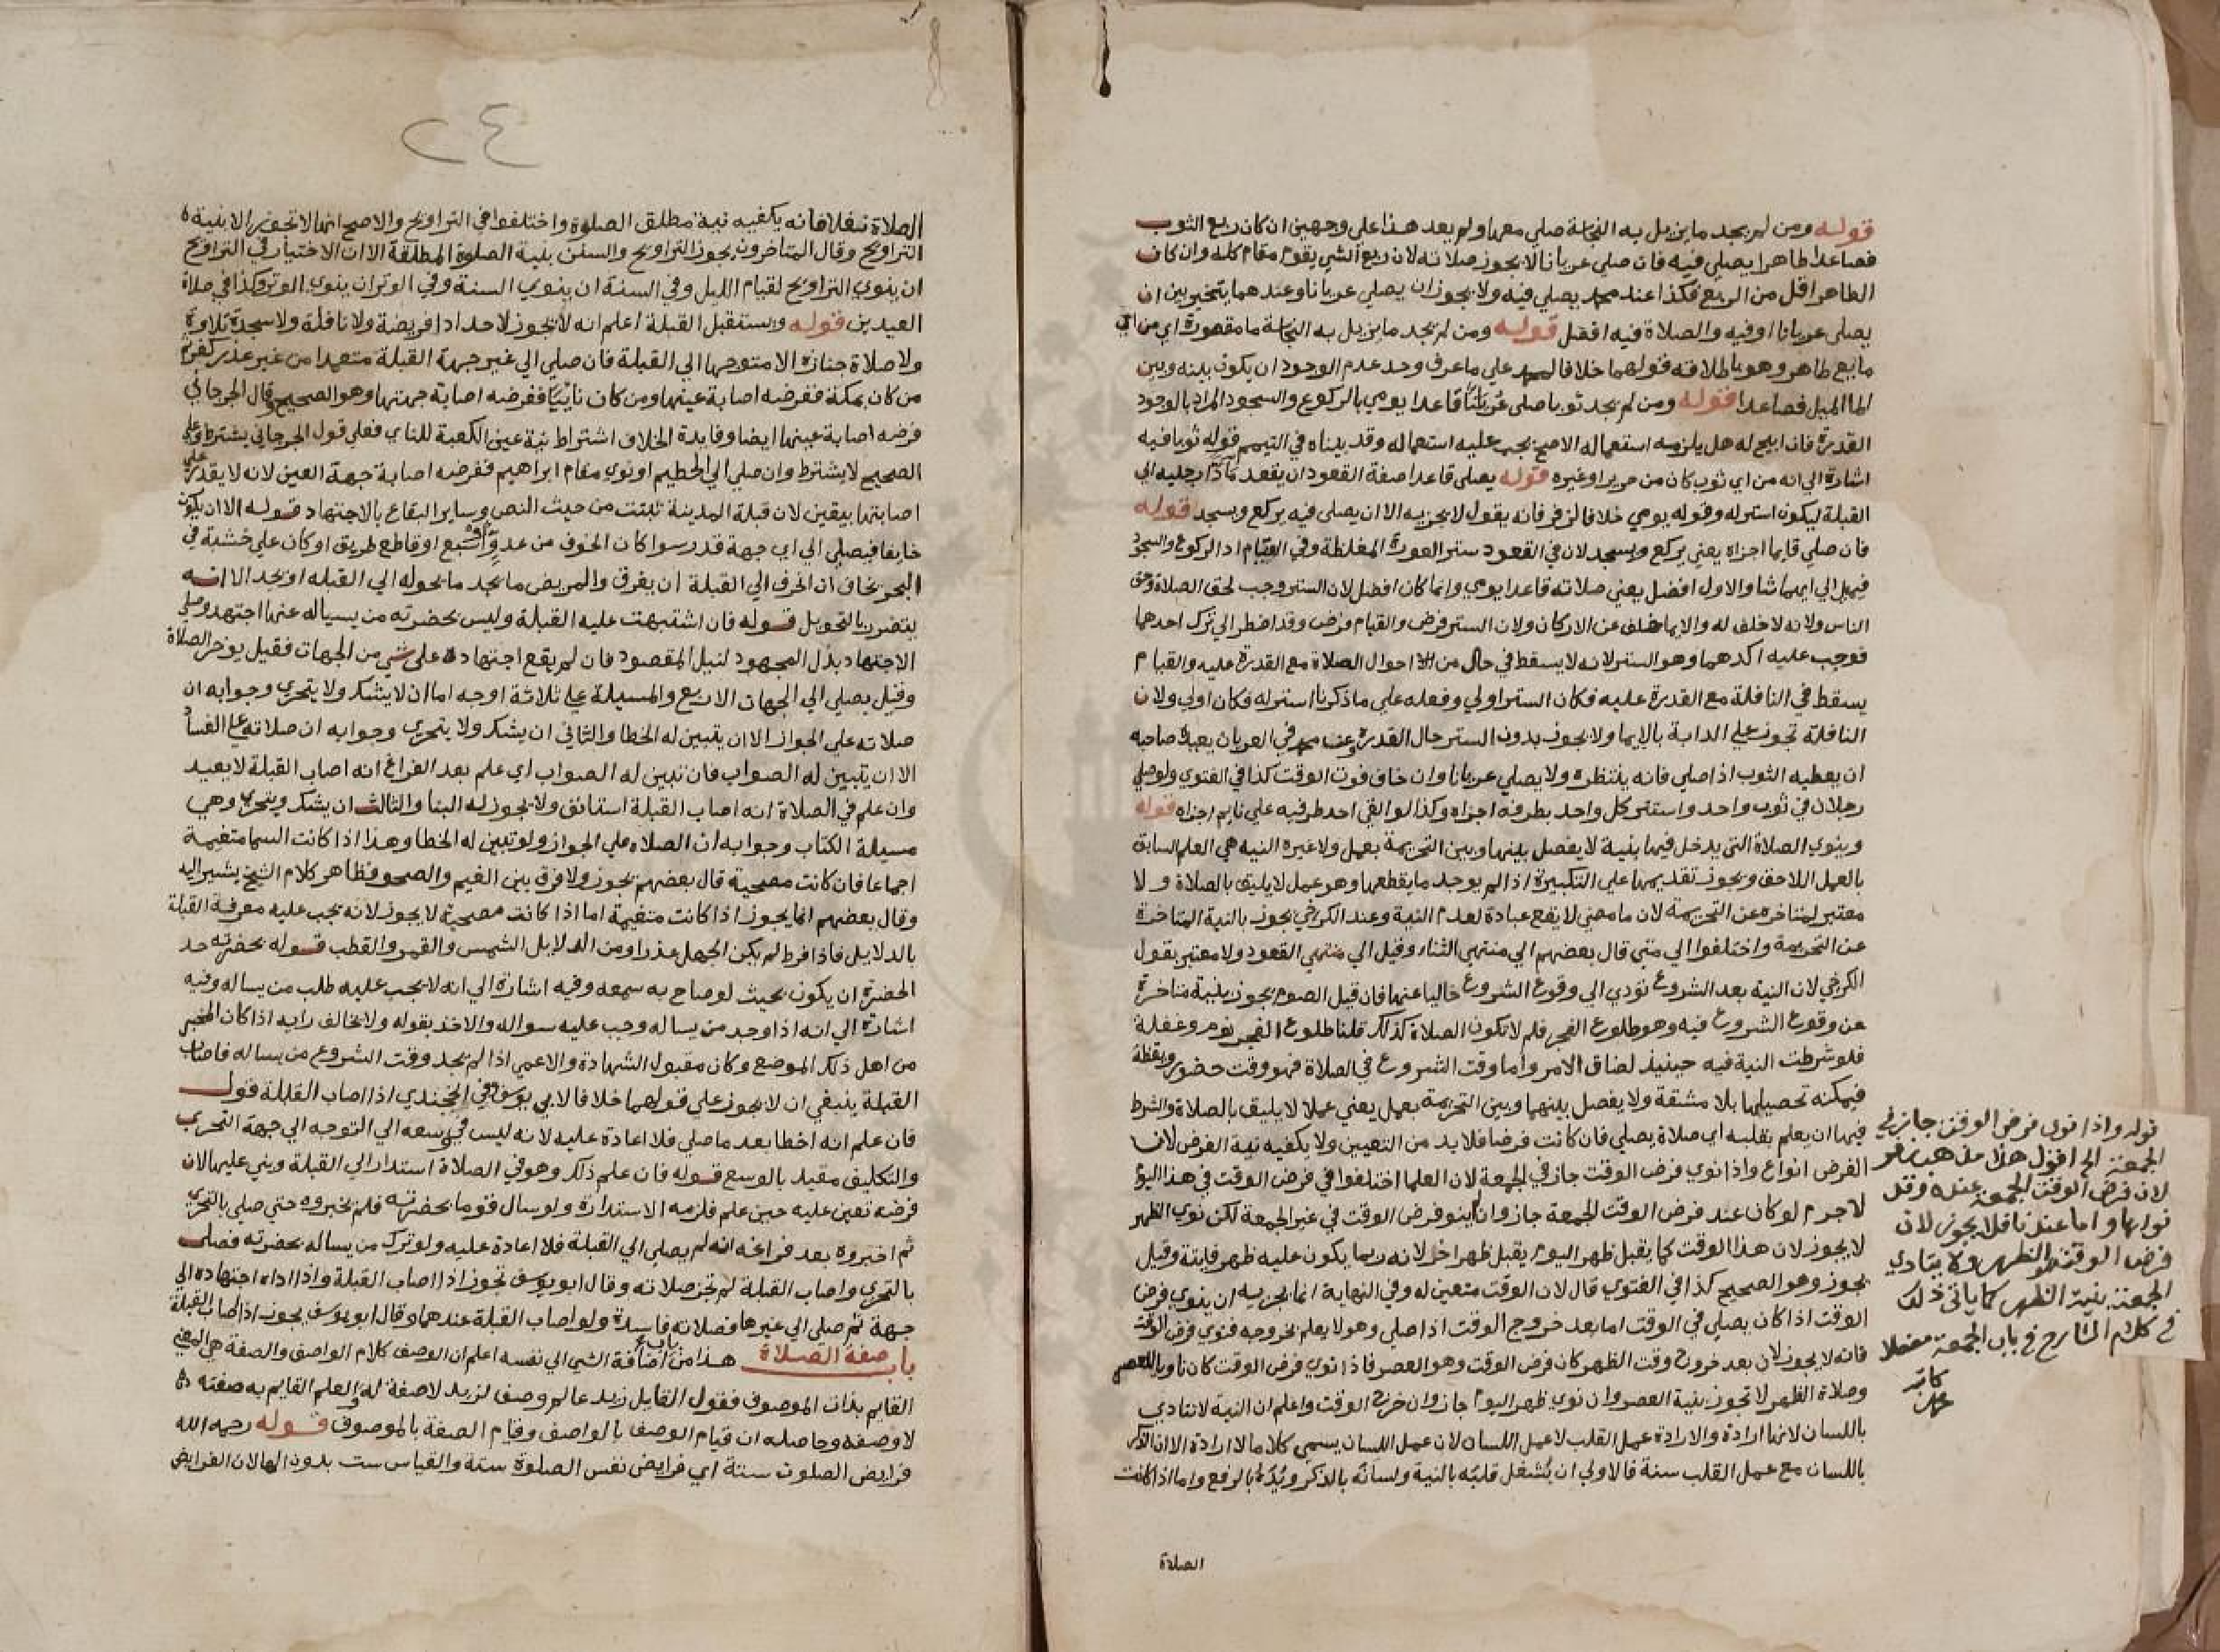 قوله ومن لم يجد ما يزيل به النجاسة صلي معها ولم يعد هذا علي وجهين ان كان ربع الثوب
فصاعدا طاهرا يصلي فيه فان صلي عريانا لا يجوز صلاته لان ربع الشي يقوم مقام كله وان كان
الطاهر اقل من الربع فكذا عند محمد يصلي فيه ولا يجوز ان يصلي عريانا وعندهما يتخير بين ان
يصلي عريانا او فيه والصلاة فيه افضل قوله ومن لم يجد ما يزيل به النجاسة ما مقصورة اي من اي
مايع طاهر وهو باطلاقه قولهما خلافا لمحمد علي ما عرف وحد عدم الوجود ان يكون بينه وبين
الما الميل فصاعدا قوله ومن لم يجد ثوبا صلي عريانا قاعدا يومي بالركوع والسجود المراد بالوجود
القدرة فان ابيح له هل يلزمه استعماله الاصح يجب عليه استعماله وقد بيناه في التيمم قوله ثوبا فيه
اشارة الي انه من اي ثوب كان من حرير او غيره قوله يصلي قاعدا صفة القعود ان يقعد مادّا رجليه الي
القبلة ليكون استر له وقوله يومي خلافا لزفر فانه يقول لا يجزيه الا ان يصلي فيه يركع ويسجد قوله
فان صلي قايما اجزاه يعني يركع ويسجد لان في القعود ستر العورة المغلظة وفي القيام ادا الركوع والسجود
فيميل الي ايهما شا والاول افضل يعني صلاته قاعدا يومي وانما كان افضل لان الستر وجب لحق الصلاة وحق
الناس ولانه لا خلف له والايما خلف عن الاركان ولان الستر فرض والقيام فرض وقد اضطر الي ترك احدهما
فوجب عليه اكدهما وهو الستر لانه لا يسقط في حال من احوال الصلاة مع القدرة عليه والقيام
يسقط في النافلة مع القدرة عليه فكان الستر اولي وفعله علي ما ذكرنا استر له فكان اولي ولان
النافلة تجوز علي الدابة بالايما ولا يجوز بدون الستر حال القدرة وعن محمد في العريان يعده صاحبه
ان يعطيه الثوب اذا صلي فانه ينتظره ولا يصلي عريانا وان خاف فوت الوقت كذا في الفتوي ولو صلي
رجلان في ثوب واحد واستتر كل واحد بطرفه اجزاه وكذا لو القي احد طرفيه علي نايم اجزاه قوله
وينوي الصلاة التي يدخل فيها بنية لا يفصل بينها وبين التحريمة بعمل ولا غيره النيه هي العلم السابق
بالعمل اللاحق ويجوز تقديمها علي التكبيرة اذا لم يوجد ما يقطعها وهو عمل لا يليق بالصلاة ولا
معتبر لمتاخره عن التحريمة لان ما مضي لا يقع عبادة لعدم النية وعند الكرخي يجوز بالنية المتاخرة
عن التحريمة واختلفوا الي متي قال بعضهم الي منتهي الثناء وقيل الي منتهي القعود ولا معتبر بقول
الكرخي لان النية بعد الشروع تؤدي الي وقوع الشروع خاليا عنها فان قيل الصوم يجوز بنية متاخرة
عن وقوع الشروع فيه وهو طلوع الفجر فلم لا تكون الصلاة كذلك قلنا طلوع الفجر نوم وغفلة
فلو شرطت النية فيه حينيذ لضاق الامر واما وقت الشروع في الصلاة فهو وقت حضور ويقظة
فيمكنه تحصيلها بلا مشقة ولا يفصل بينها وبين التحريمة بعمل يعني عملا لا يليق بالصلاة والشرط
فيها ان يعلم بقلبه اي صلاة يصلي فان كانت فرضا فلا بد من التعيين ولا يكفيه نية الفرض لان
الفرض انواع واذا نوي فرض الوقت جاز في الجمعة لان العلما اختلفوا في فرض الوقت في هذا اليوم
لا جرم لو كان عند فرض الوقت الجمعة جاز وان لم ينو فرض الوقت في غير الجمعة لكن نوي الظهر
لا يجوز لان هذا الوقت كما يقبل ظهر اليوم يقبل ظهرا اخر لانه ربما يكون عليه ظهر فايتة وقيل
يجوز وهو الصحيح كذا في الفتوي قال لان الوقت متعين له وفي النهاية انما يجزيه ان ينوي فرض
الوقت اذا كان يصلي في الوقت اما بعد خروج الوقت اذا صلي وهو لا يعلم بخروجه فنوي فرض الوقت
فانه لا يجوز لان بعد خروج وقت الظهر كان فرض الوقت وهو العصر فاذا نوي فرض الوقت كان ناويا للعصر
وصلاة الظهر لا تجوز بنية العصر وان نوي ظهر اليوم جاز وان خرج الوقت واعلم ان النية لا تتادي
باللسان لانها ارادة والارادة عمل القلب لا عمل اللسان لان عمل اللسان يسمي كلاما لا ارادة الا ان الذكر
باللسان مع عمل القلب سنة فالاولي ان يُشغل قلبه بالنية ولسانه بالذكر ويُدُه بالرفع واما اذا كانت
الصلاة
قوله واذا نوي فرض الوقت جاز في
الجمعة الخ اقول هذا مذهب زفر
لان فرض الوقت الجمعة عنده وقد
نواها واما عندنا فلا يجوز لان
فرض الوقت هو الظهر ولا يتادي
الجمعة بنية الظهر كما ياتي ذلك
في كلام الشارح في باب الجمعة مفصلا
كاتبه
٢٤
الصلاة نفلا فانه يكفيه نية مطلق الصلوة واختلفوا في التراويح والاصح انها لا تجوز الا بنية
التراويح وقال المتاخرون يجوز التراويح والسنن بنية الصلوة المطلقة الا ان الاختيار في التراويح
ان ينوي التراويح لقيام الليل وفي السنة ان ينوي السنة وفي الوتر ان ينوي الوتر وكذا في صلاة
العيدين قوله ويستقبل القبلة اعلم انه لا تجوز لاحد ادا فريضة ولا نافلة ولا سجدة تلاوة
ولا صلاة جنازة الا متوجها الي القبلة فان صلي الي غير جهة القبلة متعمدا من غير عذر كفر ثم
من كان بمكة ففرضه اصابة عينها ومن كان نايئا ففرضه اصابة جهتها وهو الصحيح وقال الجرجاني
فرضه اصابة عينها ايضا وفايدة الخلاف اشتراط نية عين الكعبة للناي فعلي قول الجرجاني يشترط وعلي
الصحيح لا يشترط وان صلي الي الحطيم او نوي مقام ابراهيم ففرضه اصابة جهة العين لانه لا يقدر علي
اصابتها بيقين لان قبلة المدينة ثبتت من حيث النص وساير البقاع بالاجتهاد قوله الا ان يكون
خايفا فيصلي الي اي جهة قدر سوا كان الخوف من عدو او سبع او قاطع طريق او كان علي خشبة في
البحر يخاف ان انحرف الي القبلة ان يغرق والمريض ما يجد ما يحوله الي القبله او يجد الا انه
يتضرر بالتحويل قوله فان اشتبهت عليه القبلة وليس بحضرته من يسياله عنها اجتهد وصلي
الاجتهاد بذل المجهود لنيل المقصود فان لم يقع اجتهاده علي شي من الجهات فقيل يوخر الصلاة
وقيل يصلي الي الجهات الاربع والمسيلة علي ثلاثة اوجه اما ان لا يشك ولا يتحري وجوابه ان
صلاته علي الجواز الا ان يتبين له الخطا والثاني ان يشك ولا يتحري وجوابه ان صلاته علي الفساد
الا ان يتبين له الصواب فان تبين له الصواب اي علم بعد الفراغ انه اصاب القبلة لا يعيد
وان علم في الصلاة انه اصاب القبلة استانف ولا يجوز له البنا والثالث ان يشك ويتحري وهي
مسيلة الكتاب وجوابه ان الصلاه علي الجواز ولو تبين له الخطا وهذا اذا كانت السما متغيمة
اجماعا فان كانت مصحية قال بعضهم يجوز ولا فرق بين الغيم والصحو فظاهر كلام الشيخ يشير اليه
وقال بعضهم انما يجوز اذا كانت متغيمة اما اذا كانت مصحية لا يجوز لانه يجب عليه معرفة القبلة
بالدلايل فاذا فرط لم يكن الجهل عذرا ومن الدلايل الشمس والقمر والقطب قوله بحضرته حد
الحضرة ان يكون بحيث لو صاح به سمعه وفيه اشارة الي انه لا يجب عليه طلب من يساله وفيه
اشارة الي انه اذا وجد من يساله وجب عليه سواله والاخذ بقوله ولا يخالف رايه اذا كان المخبر
من اهل ذلك الموضع وكان مقبول الشهادة والاعمي اذا لم يجد وقت الشروع من يساله فاصاب
القبلة ينبغي ان لا يجوز علي قولهما خلافا لابي يوسف وفي الخجندي اذا اصاب القبلة قوله
فان علم انه اخطا بعد ما صلي فلا اعادة عليه لانه ليس في وسعه الي التوجه الي جهة التحري
والتكليف مقيد بالوسع قوله فان علم ذلك وهو في الصلاة استدار الي القبلة وبني عليها لان
فرضه تعين عليه حين علم فلزمه الاستدارة ولو سال قوما بحضرته فلم يخبروه حتي صلي بالتحري
ثم اخبروه بعد فراغه انه لم يصلي الي القبلة فلا اعادة عليه ولو ترك من يساله بحضرته فصلي
بالتحري واصاب القبلة لم تجز صلاته وقال ابو يوسف تجوز اذا اصاب القبلة واذا اداه اجتهاده الي
جهة ثم صلي الي غيرها فصلاته فاسدة ولو اصاب القبلة عندهما وقال ابو يوسف يجوز اذا اصاب القبلة
باب صفة الصلاة هذا من باب اضافة الشي الي نفسه اعلم ان الوصف كلام الواصف والصفة هي المعني
القايم بذات الموصوف فقول القايل زيد عالم وصف لزيد لا صفة له والعلم القايم به صفته
لا وصفه وحاصله ان قيام الوصف بالواصف وقيام الصفة بالموصوف قوله رحمه الله
فرايض الصلوت ستة اي فرايض نفس الصلوة ستة والقياس ست بدون الها لان الفرايض